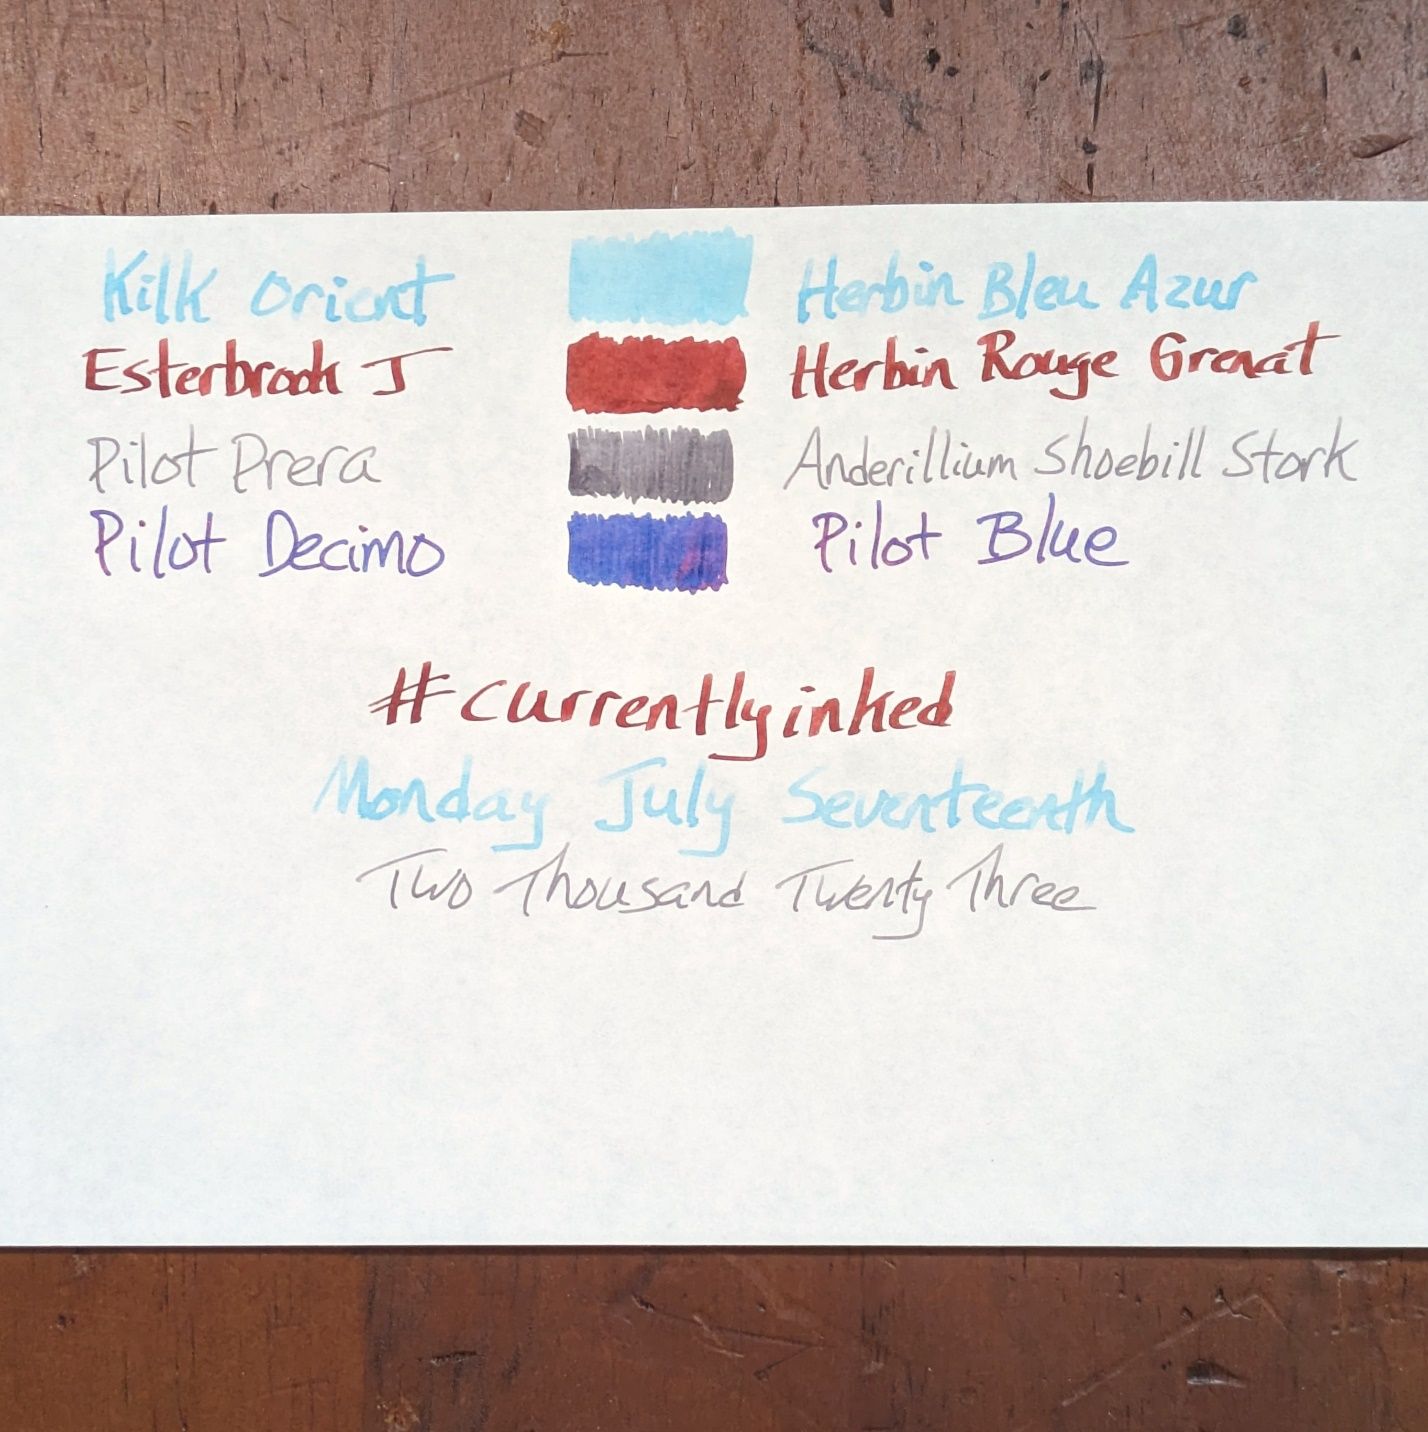 Kilk Orient Herbin Bleu Azur
Esterbrook J Herbin Rouge Grenat
Pilot Prera Anderillium Shoebill Stork
Pilot Decimo Pilot Blue
#currentlyinked
Monday July Seventeenth
Two Thousand Twenty Three